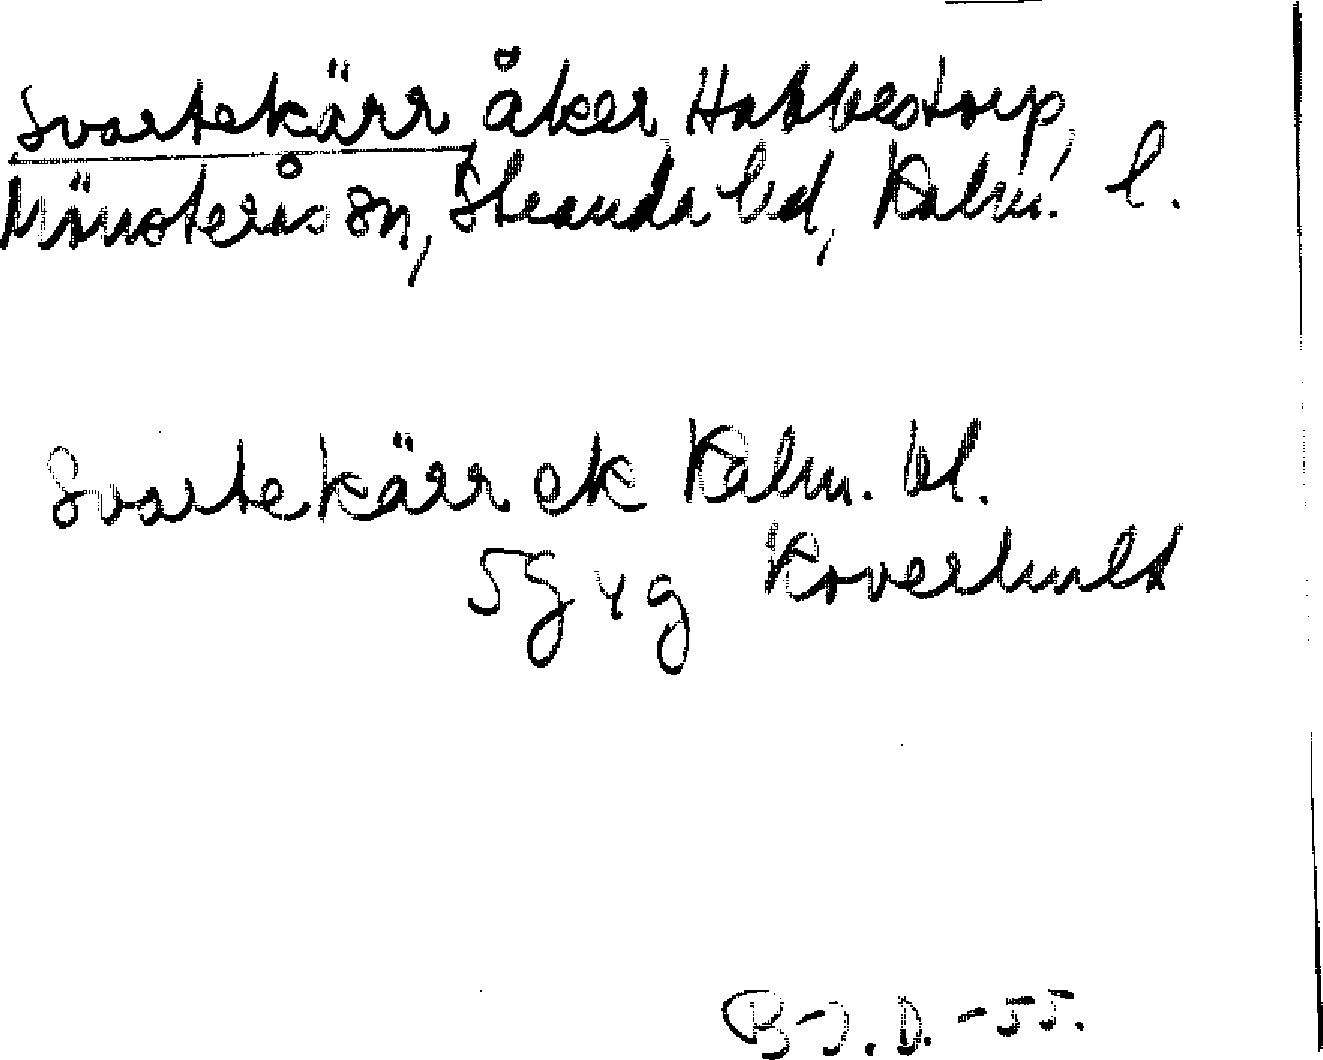 Svartekärr, åker, Habbestorp,
Mönsterås sn, Stranda hd, Kalm. l.
Svartekärr ek Kalm. bl.
5g yg Koverhult
B-J. D. -55.